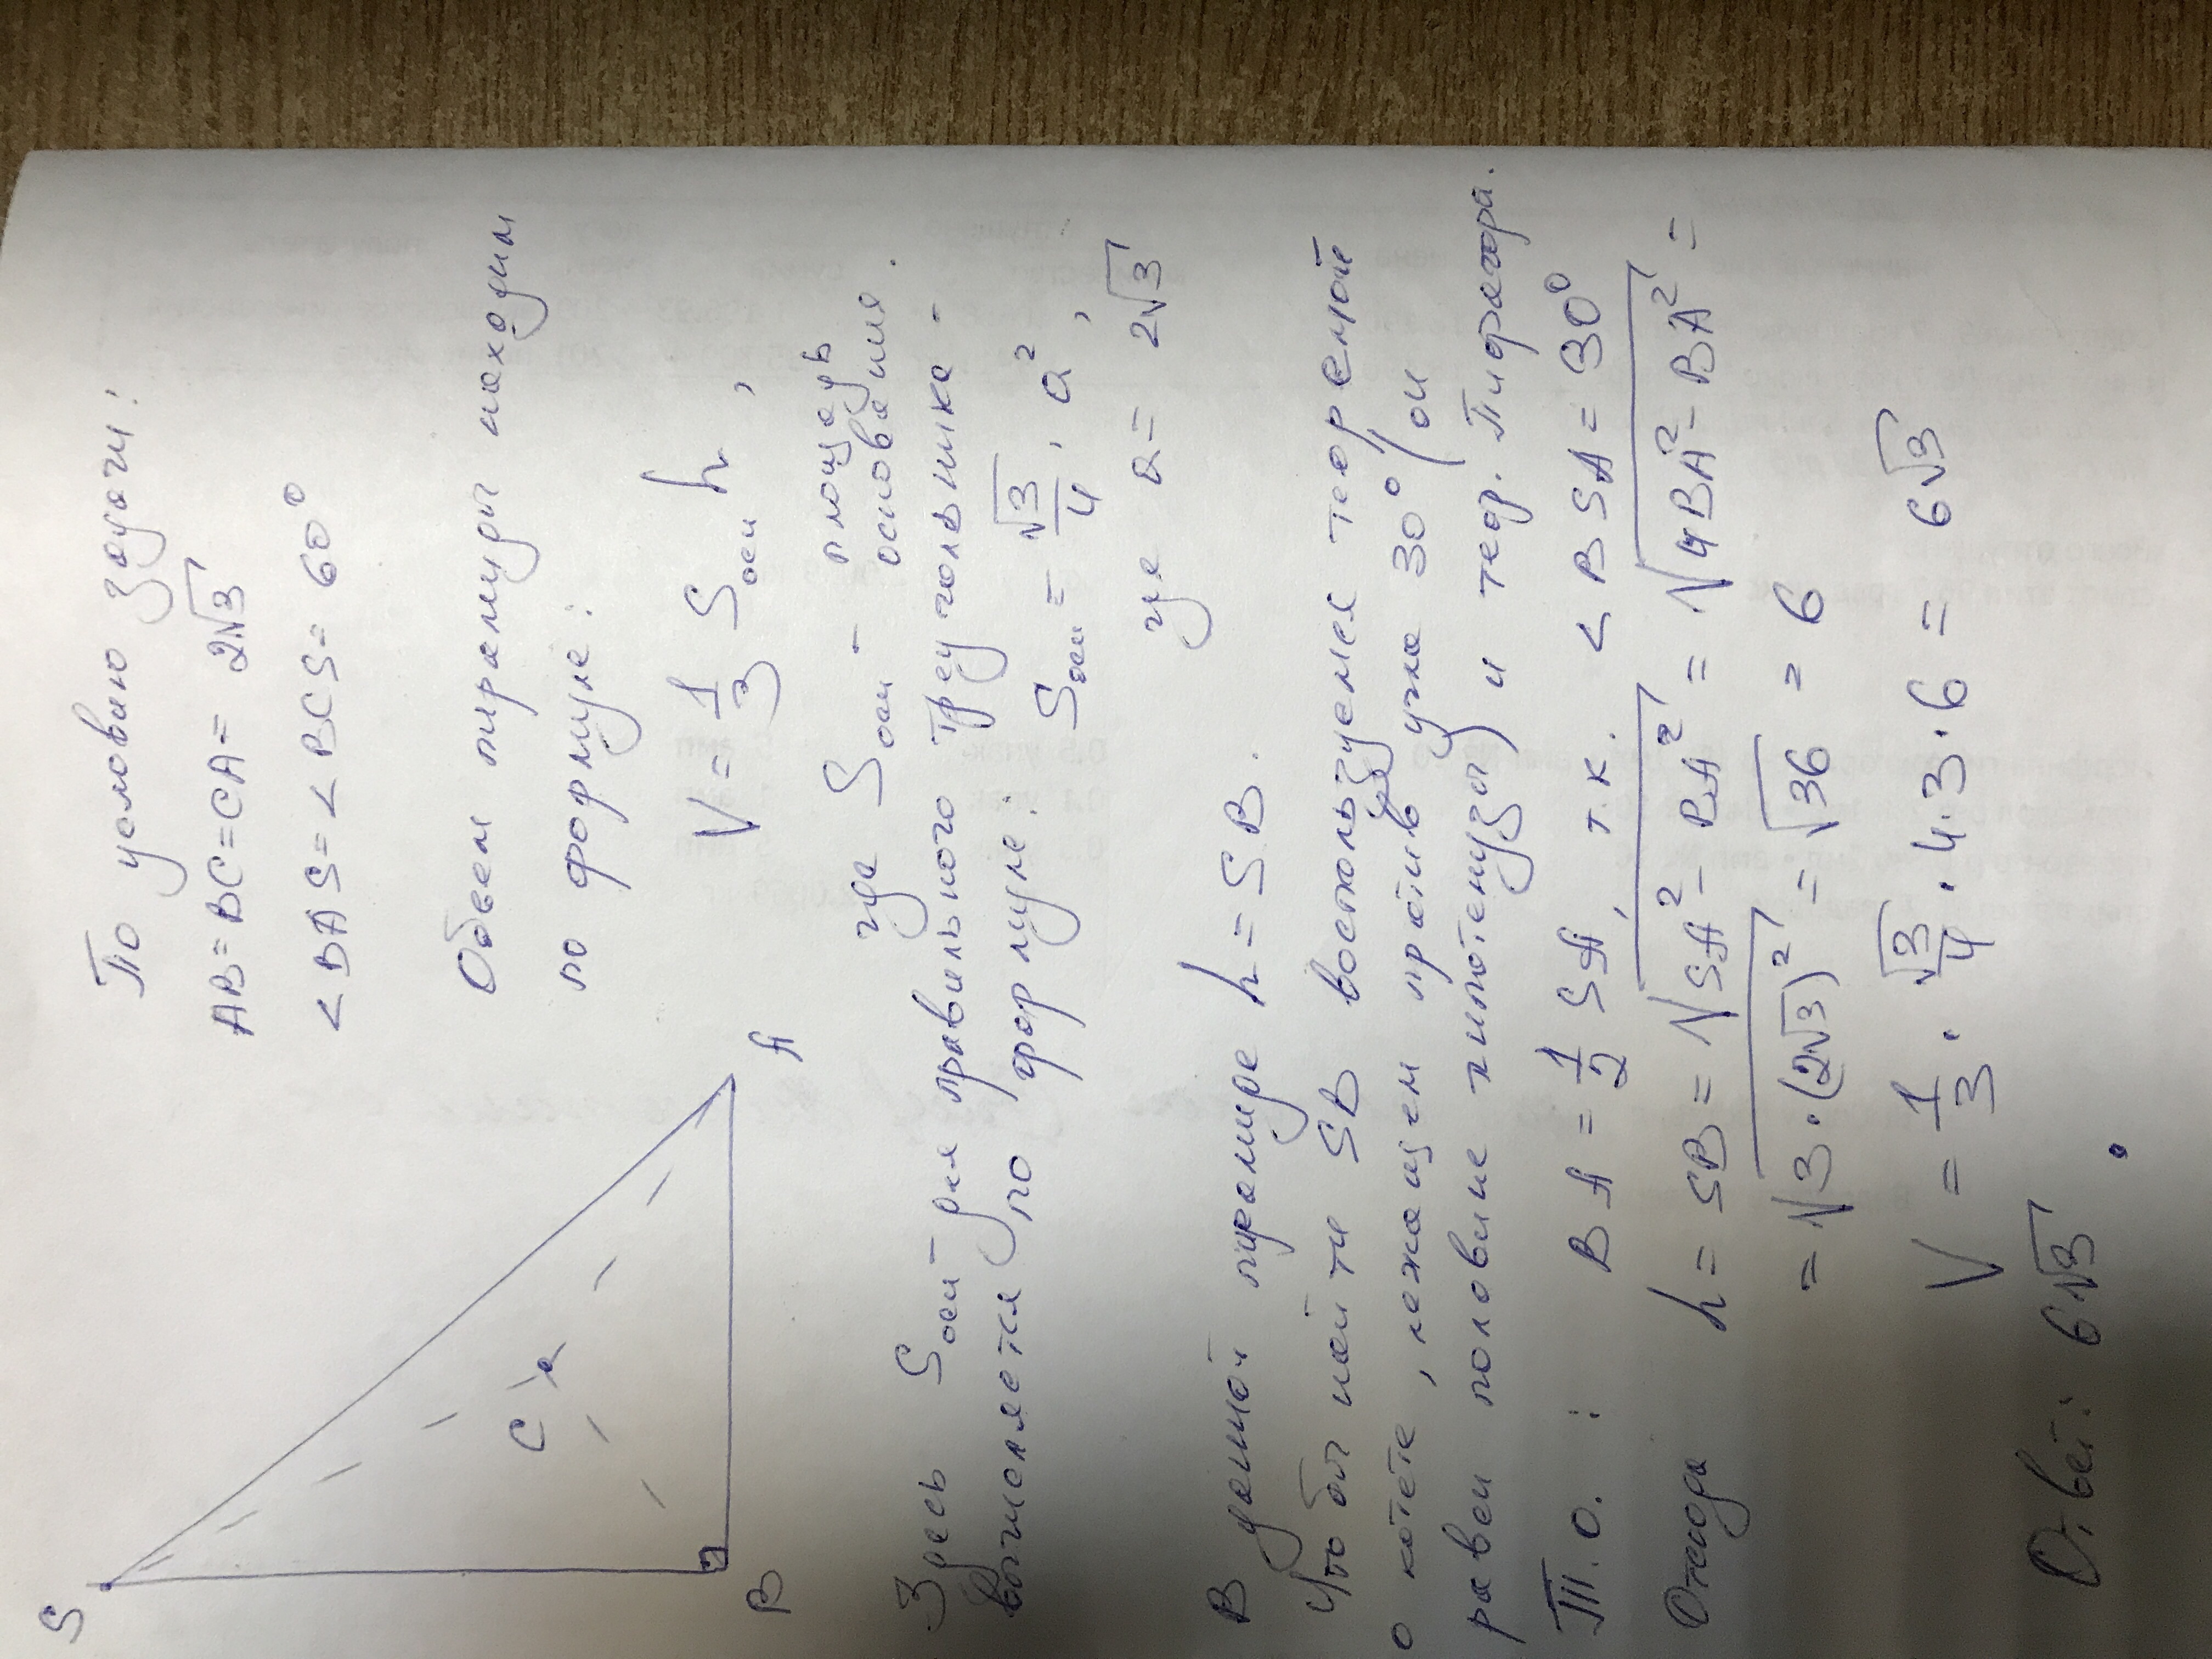 По условию задачи:
AB = BC = CA = 2√3
< BAS = < BCS = 60°
Обьем пирамиды находим
по формуле:
V = 1/3 Sосн h,
где Sосн - площадь
основания.
S
B
A
C
Здесь Sосн для правильного треугольника -
вычисляется по формуле: Sосн = √3/4 · a²,
где a = 2√3
В данной пирамиде h = SB.
Чтобы найти SB воспользуемся теоремой
о катете, лежащем против угла 30° (он
равен половине гипотенузы) и теор. Пифагора.
Т.о. : BA = 1/2 SA, т.к. < BSA = 30°
Отсюда h = SB = √SA² - BA² = √4BA² - BA² =
= √3·(2√3)² = √36 = 6
V = 1/3 · √3/4 · 4·3·6 = 6√3
Ответ: 6√3.